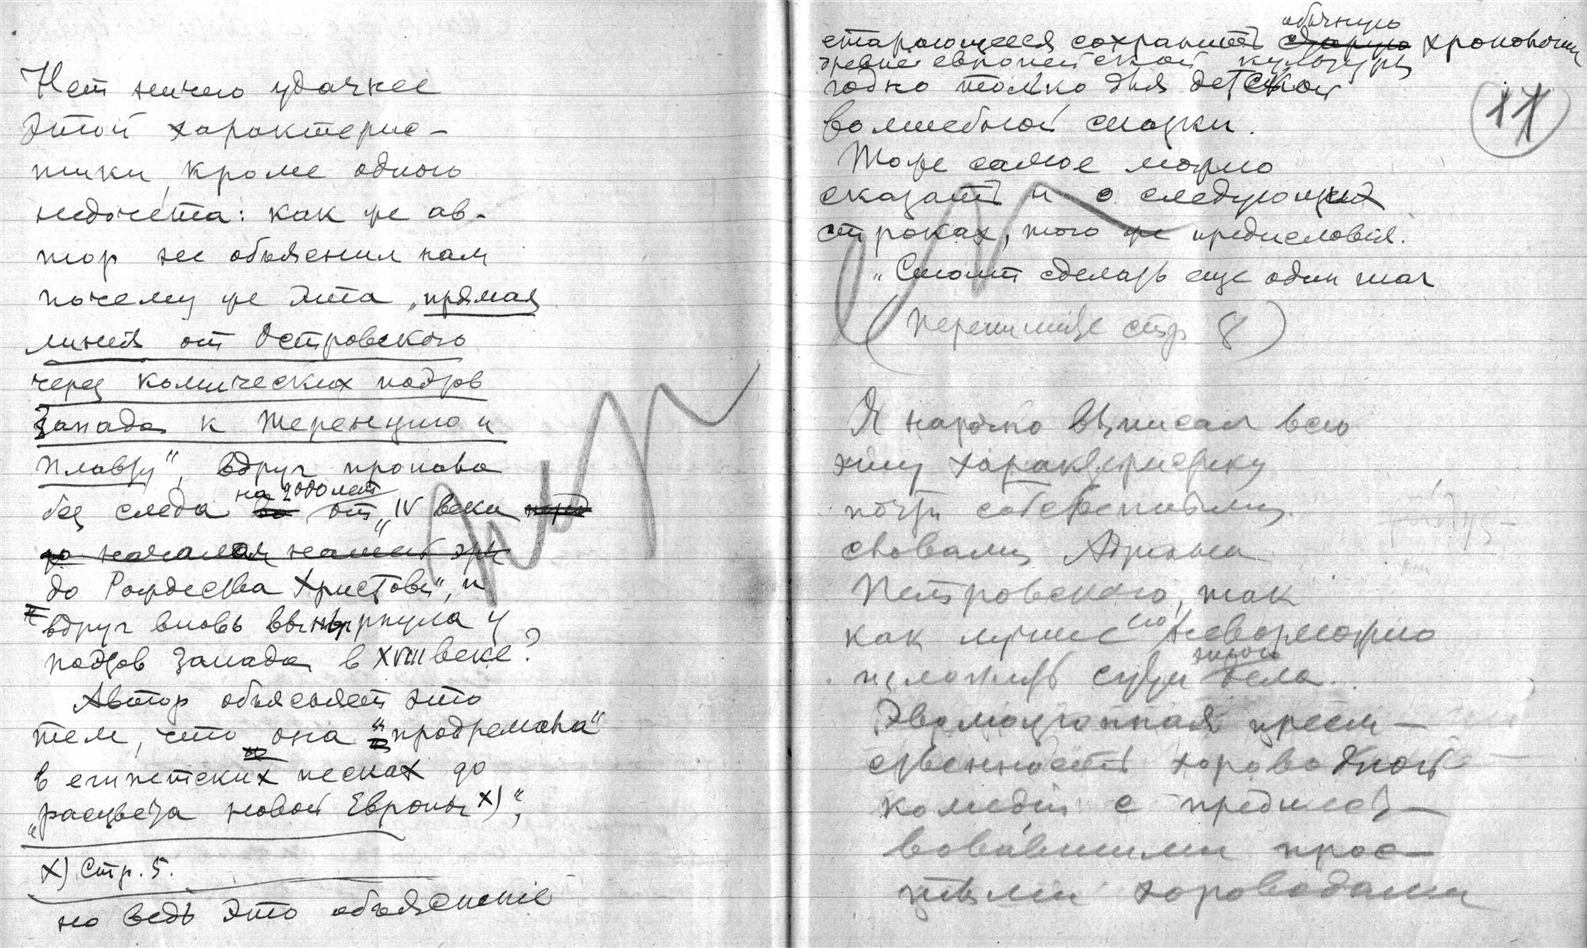 Нет ничего удачнее
этой характерис-
тики, кроме одного
недочета: как же ав-
тор не объяснил нам
почему же эта „прямая
линия от Островского
через комических поэтов
Запада к Теренцию и
Плавту", вдруг пропала
без следа на 2000 лет от „IV века
до Рождества Христова", и
вдруг вновь вынырнула у
поэтов Запада в XVIII веке?
Автор объясняет это
тем, что она "продремала"
в египетских песках до
„расцвета новой Европы х)",
х) Стр. 5.
но ведь это объяснение
старающееся сохранить обычную хронологию
древне европейской культуры
годно только для детской
волшебной сказки.
17
Тоже самое можно
сказать и о следующих
строках, того же предисловия.
„Стоит сделать еще один шаг
(Перепишите стр 8)
Я нарочно выписал всю
эту характеристику
почти собственными
словами Адриана
Петровского, так
как лучше невозможно
изложить суть этого дела.
Эволюционная преем-
ственность хороводной
комедии с предшест-
вовавшими прос-
тыми хороводами